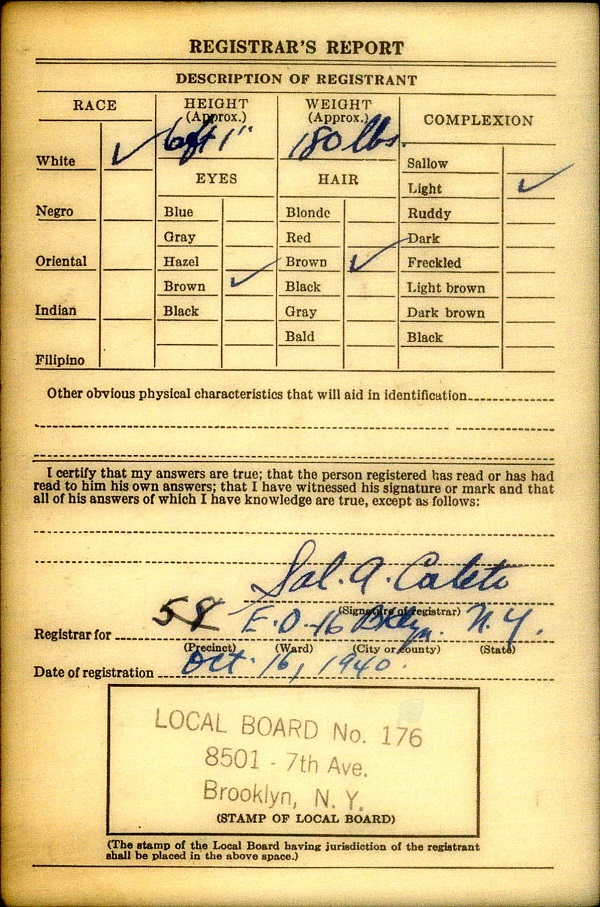 REGISTRAR'S REPORT
DESCRIPTION OF REGISTRANT
RACE
HEIGHT
(Approx.)
WEIGHT
(Approx.)
COMPLEXION
6 ft 1"
180 lbs.
White ✓
Negro
Oriental
Indian
Filipino
EYES
Blue
Gray
Hazel
Brown ✓
Black
HAIR
Blonde
Red
Brown ✓
Black
Gray
Bald
Sallow
Light ✓
Ruddy
Dark
Freckled
Light brown
Dark brown
Black
Other obvious physical characteristics that will aid in identification
I certify that my answers are true; that the person registered has read or has had
read to him his own answers; that I have witnessed his signature or mark and that
all of his answers of which I have knowledge are true, except as follows:
Sal. A.
(Signature of registrar)
Registrar for 58 E.D-16 Bklyn. N.Y.
(Precinct) (Ward) (City or county) (State)
Date of registration Oct. 16, 1940.
LOCAL BOARD No. 176
8501 - 7th Ave.
Brooklyn, N. Y.
(STAMP OF LOCAL BOARD)
(The stamp of the Local Board having jurisdiction of the registrant
shall be placed in the above space.)